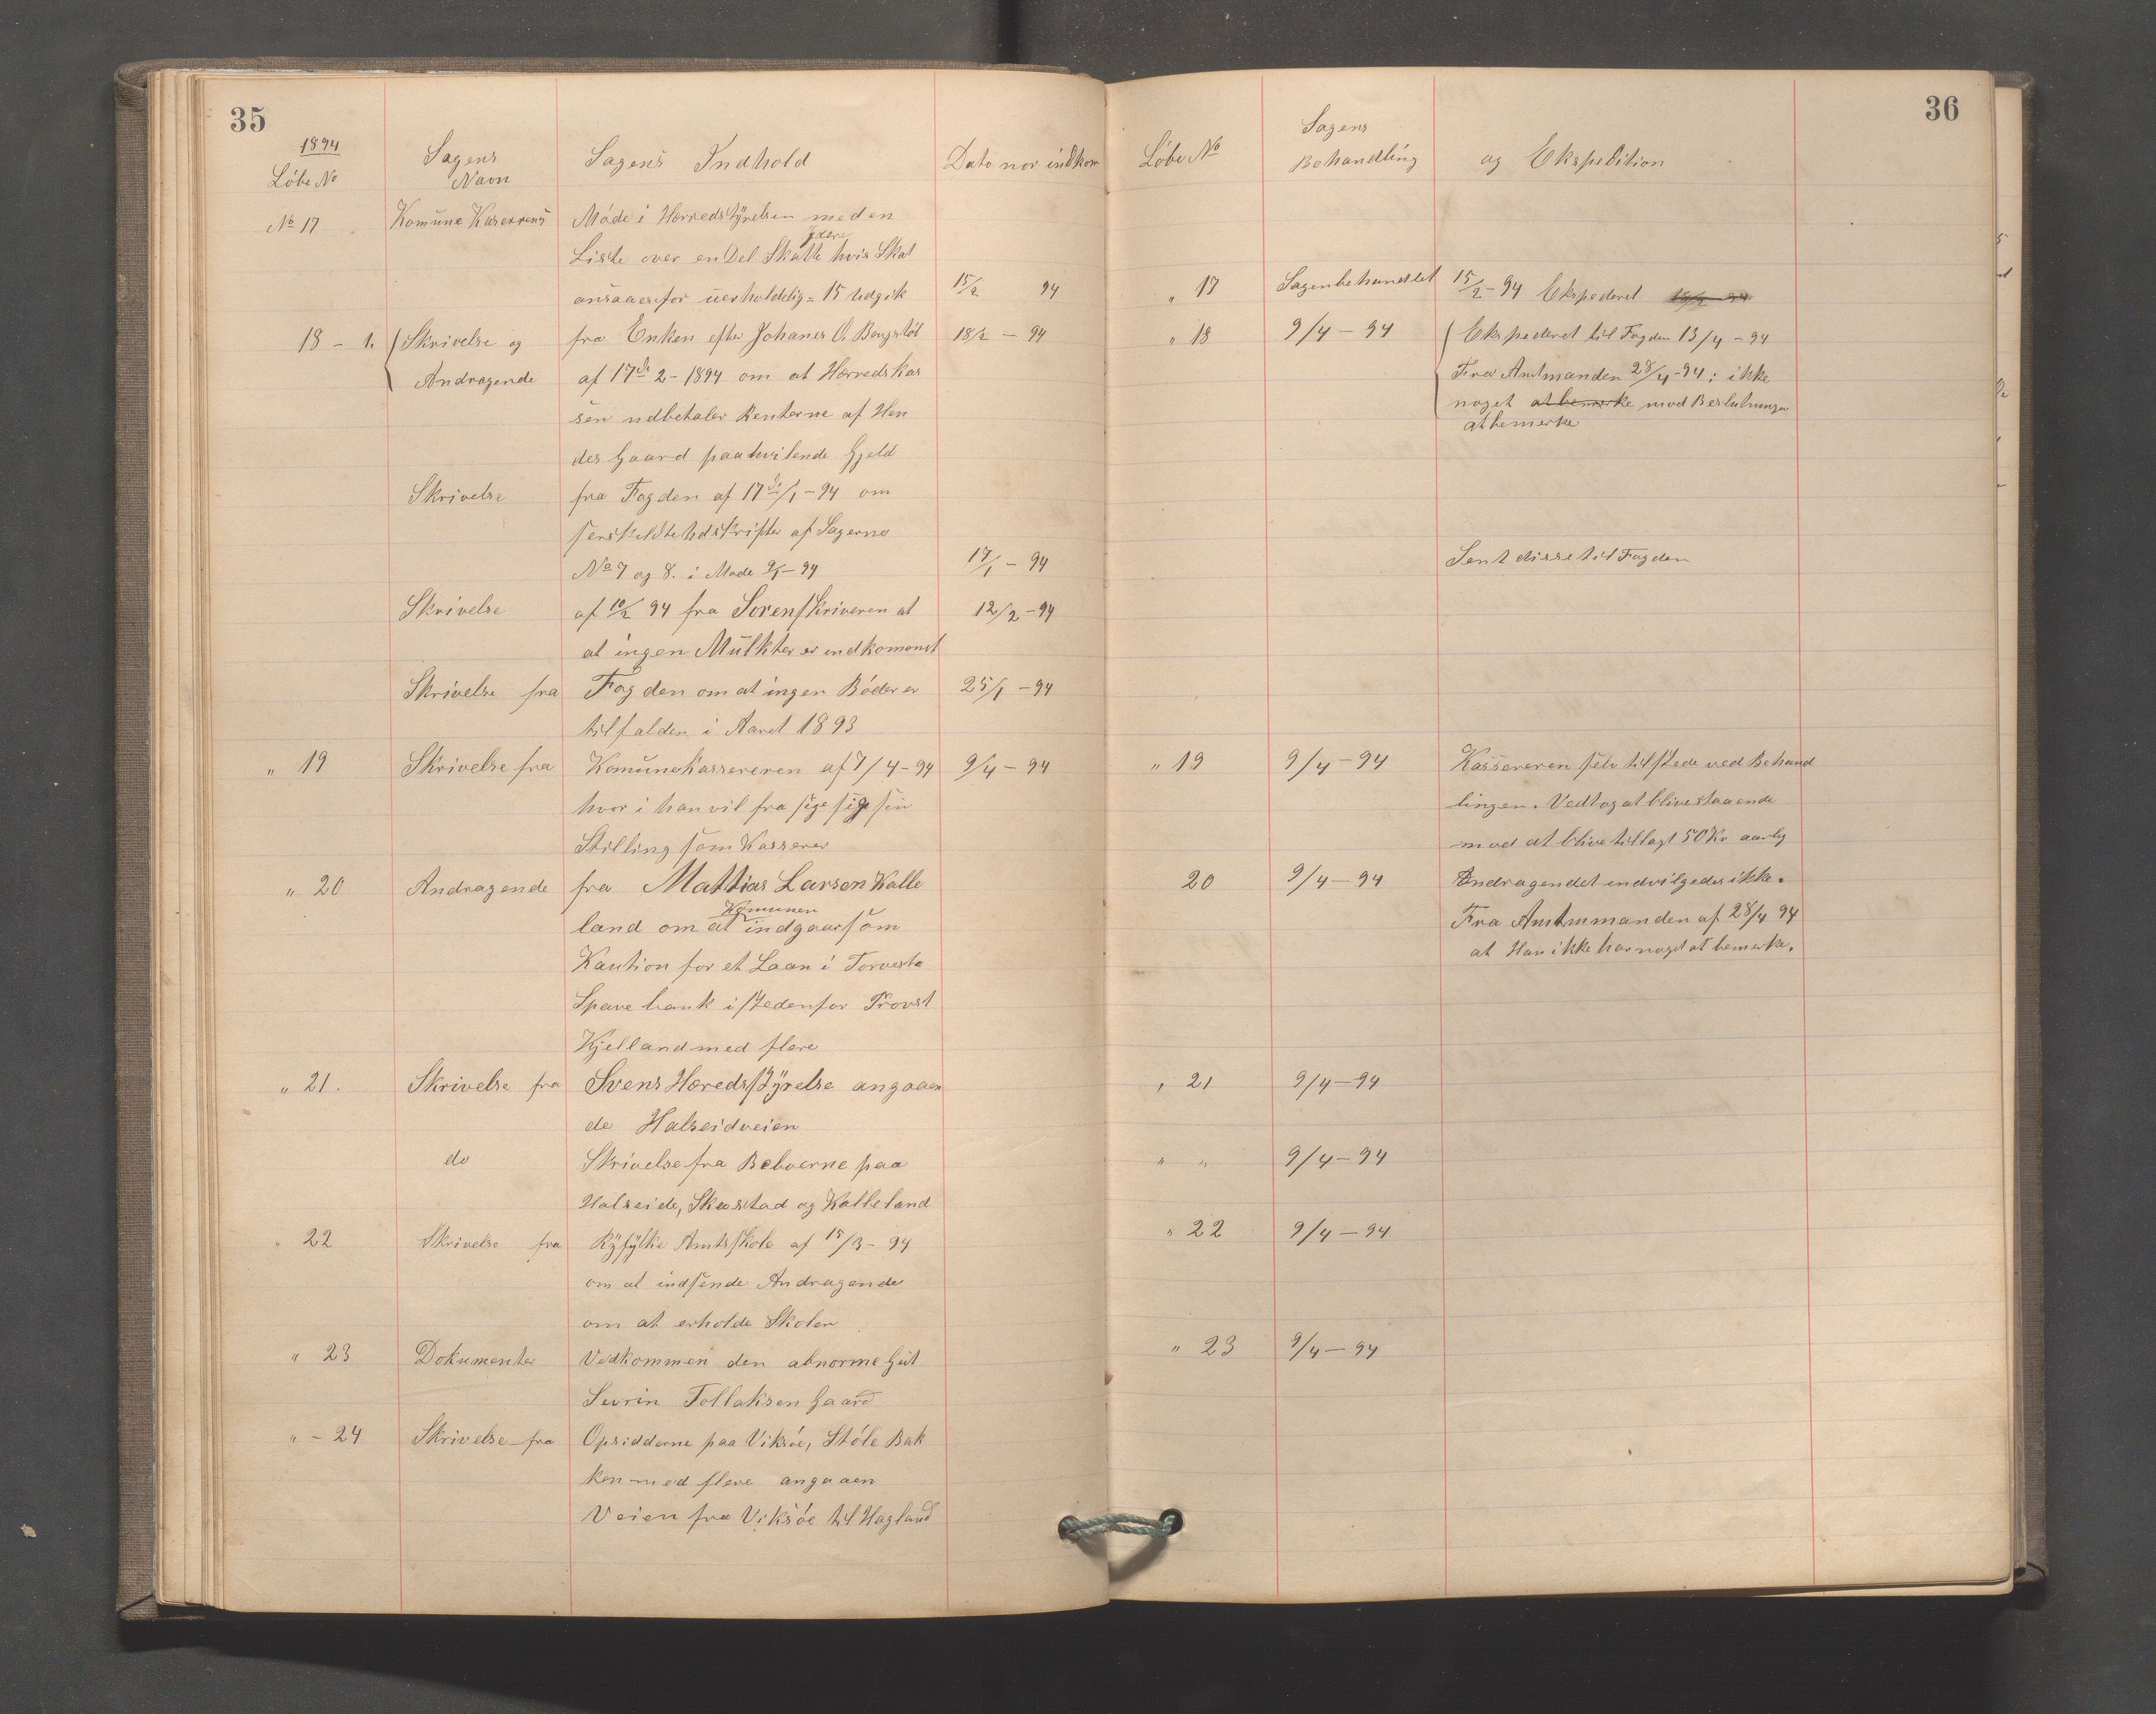 35
1894
Löbe No
Sagens
Navn
Sagens Indhold
Dato nor indkom
No 17
Komune Kaserrens
Möde i Herredstyrelsen med en
Liste over en Del Skatte ydere hvis Skat
ansaaes for uerholdelig = 15 Udgik
15/2 94
18 - 1.
Skrivelse og
Andragende
fra Enken efter Johanes O.
18/2 - 94
af 17de 2 - 1894 om at Herredskas
sen udbetaler Renterne af Hen
des Gaard paahvilende Gjeld
Skrivelse
fra Fogden af 17de/1 - 94 om
serskildte Udskrifter af Sagerne
No 7 og 8. i Mode 9/1 - 94
17/1 - 94
Skrivelse
af 10/2 94 fra Sorenskriveren at
12/2 - 94
at ingen Mulkter er indkomonst
Skrivelse fra
Fogden om at ingen Böder er
25/1 - 94
tilfalden i Aaret 1893
" 19
Skrivelse fra
Komunekassereren af 7/4 - 94
9/4 - 94
hvor i han vil fra sige sige sin
Stilling som Kasserer
" 20
Andragende
fra Mattias Larsen Kalle
land om at Komunen indgaar som
Kaution for et Laan i Torvestc
Spare bank i stedenfor Provst
Kjelland med flere
" 21.
Skrivelse fra
Svens Heredsstyrelse angaaen
de Halseidveien
do
Skrivelse fra Beboerne paa
Halseide, Skeistad og Kalleland
22
Skrivelse fra
Ryfylke Amtsskole af 15/3 - 94
om at indsende Andragende
om at erholde Skolen
" 23
Dokumenter
Vedkommen den abnorme Gut
Sevrin Tollaksen Gaard
" - 24
Skrivelse fra
Opsidderne paa Viksöe, Stöle Bak
ken med flere angaaen
Veien fra Viksöe til Hagland
36
Löbe No
Sagens
Behandling
og Ekspedition
" 17
Sagen behandlet
15/2 - 94 Ekspederet
" 18
9/4 - 94
Ekspederet til Fogden 13/4 - 94
Fra Amtmanden 28/4 - 94: ikke
noget at bemerke mod Beslutningen
at bemerke
Sent disse til Fogden
" 19
9/4 - 94
Kassereren selv tilstede ved Behand
lingen. Vedtog at blive staaende
mod at blive tillagt 50 Kr aarlig
20
9/4 - 94
Andragendet indvilgedes ikke.
Fra Amtmmanden af 28/4 94
at Han ikke har noget at bemerke.
" 21
9/4 - 94
" "
9/4 - 94
" 22
9/4 - 94
" 23
9/4 - 94